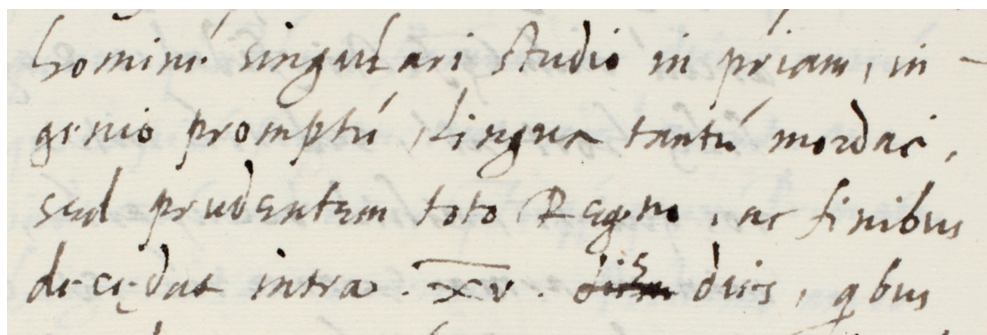 hominē singulari studio in p̄riam, in-
genio promptū, Lingua tantū mordaci,
sed prudentem toto Regno, ac finibus
decędat intra .xv. dies, qbus